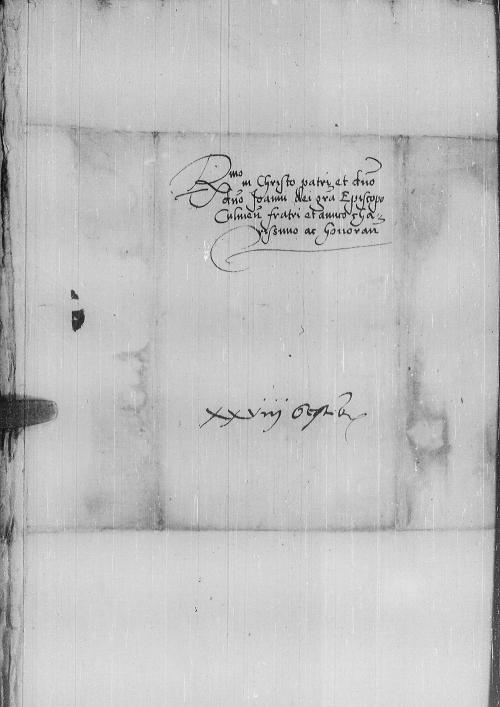 Rmo in Christo patri et dno
dno Joanni dei gra Episcopo
Culmen fratri et amico cha-
rissimo ac honoran
xxviij Septēbr